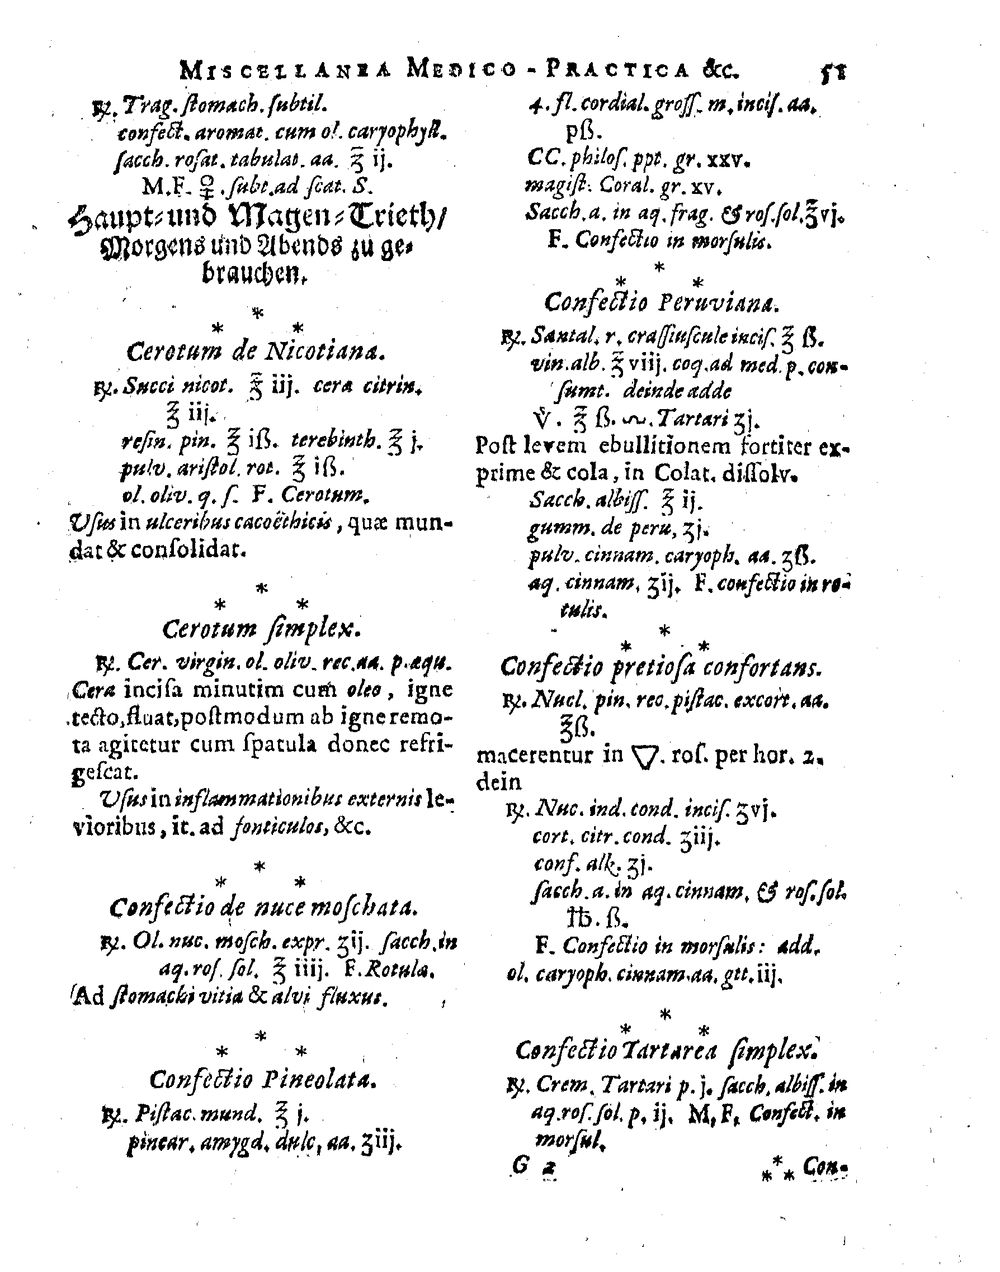 MISCELLANEA MEDICO-PRACTICA &c. 51
℞. Trag. ſtomach. ſubtil.
confect. aromat. cum ol. caryophyll.
ſacch. roſat. tabulat. aa. ℥ ij.
M.F. ♀. ſubt. ad ſcat. S.
Haupt⸗und Magen⸗Trieth/
Morgens und Abends zu ge⸗
brauchen.
* * *
Cerotum de Nicotiana.
℞. Succi nicot. ℥ iij. cera citrin.
℥ iij.
reſin. pin. ℥ iß. terebinth. ℥ j.
pulv. ariſtol. rot. ℥ iß.
ol. oliv. q. ſ. F. Cerotum.
Uſus in ulceribus cacoëthicis, quæ mun-
dat & conſolidat.
* * *
Cerotum ſimplex.
℞. Cer. virgin. ol. oliv. rec. aa. p. æqu.
Cera inciſa minutim cum oleo, igne
tecto, fluat, poſtmodum ab igne remo-
ta agitetur cum ſpatula donec refri-
geſcat.
Uſus in inflammationibus externis le-
vioribus, it. ad fonticulos, &c.
* * *
Confectio de nuce moſchata.
℞. Ol. nuc. moſch. expr. ʒij. ſacch. in
aq. roſ. ſol. ℥ iiij. F. Rotula.
Ad ſtomachi vitia & alvi fluxus.
* * *
Confectio Pineolata.
℞. Piſtac. mund. ℥ j.
pinear. amygd. dulc. aa. ʒiij.
4. fl. cordial. groſſ. m. inciſ. aa.
pß.
CC. philoſ. ppt. gr. xxv.
magiſt. Coral. gr. xv.
Sacch. a. in aq. frag. & roſ. ſol. ℥vj.
F. Confectio in morſulis.
* * *
Confectio Peruviana.
℞. Santal. r. craſſiuſcule inciſ. ℥ ß.
vin. alb. ℥ viij. coq. ad med. p. con-
ſumt. deinde adde
V̊. ℥ ß. ~. Tartari ʒj.
Poſt levem ebullitionem fortiter ex-
prime & cola, in Colat. diſſolv.
Sacch. albiſſ. ℥ ij.
gumm. de peru, ʒj.
pulv. cinnam. caryoph. aa. ʒß.
aq. cinnam. ʒij. F. confectio in ro-
tulis.
* * *
Confectio pretioſa confortans.
℞. Nucl. pin. rec. piſtac. excort. aa.
℥ß.
macerentur in 🜄. roſ. per hor. 2.
dein
℞. Nuc. ind. cond. inciſ. ʒvj.
cort. citr. cond. ʒiij.
conf. alk. ʒj.
ſacch. a. in aq. cinnam. & roſ. ſol.
℔. ß.
F. Confectio in morſulis: add.
ol. caryoph. cinnam. aa. gtt. iij.
* * *
Confectio Tartarea ſimplex.
℞. Crem. Tartari p. j. ſacch. albiſſ. in
aq. roſ. ſol. p. ij. M. F. Confect. in
morſul.
G 2 * * * Con-